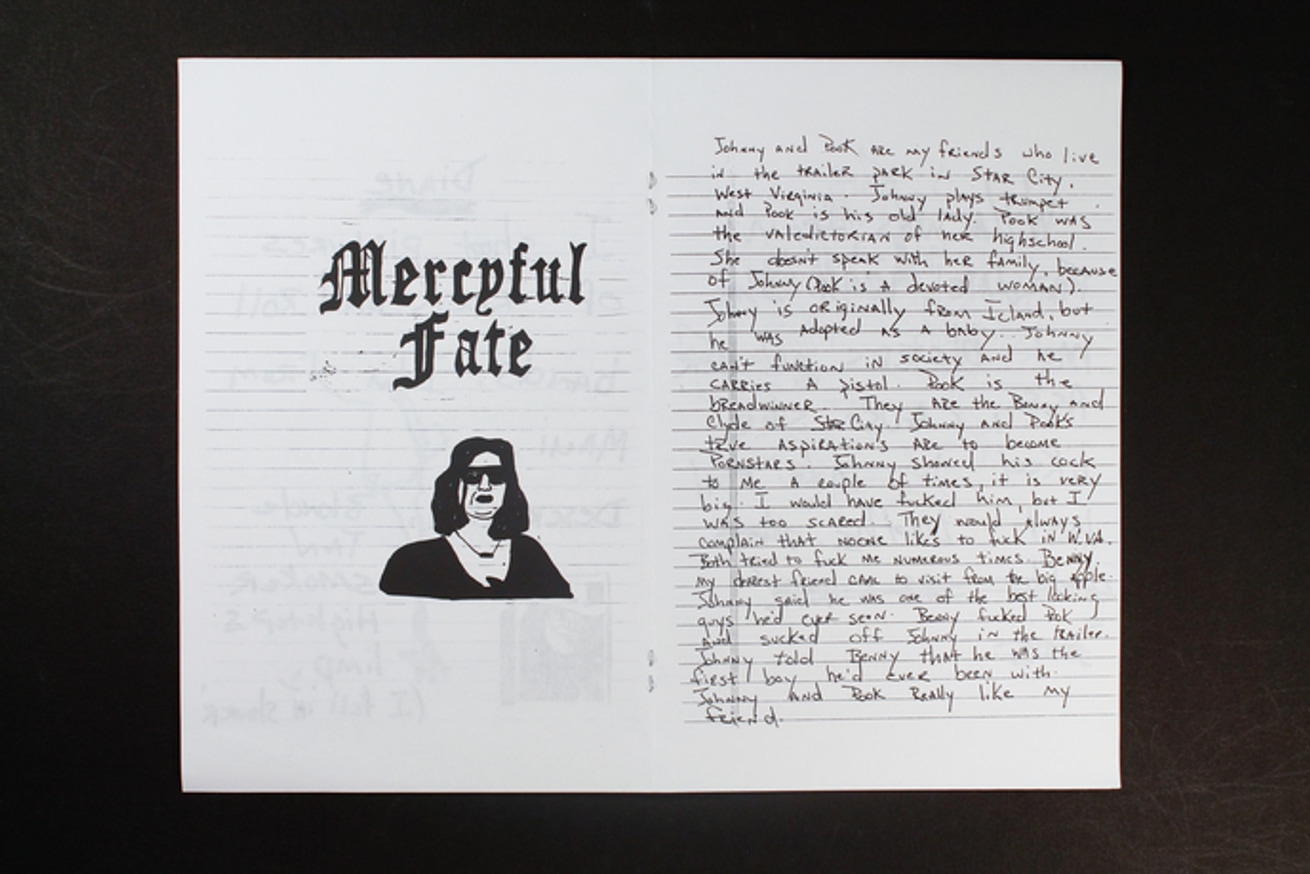 Mercyful
Fate
Johnny and Pook are my friends who live
in the trailer park in Star City,
West Virginia. Johnny plays trumpet
and Pook is his old lady. Pook was
the valedictorian of her highschool.
She doesn't speak with her family, because
of Johnny (Pook is a devoted woman).
Johnny is originally from Icland, but
he was adopted as a baby. Johnny
can't function in society and he
carries a pistol. Pook is the
breadwinner. They are the Bonny and
Clyde of Star City. Johnny and Pook's
true aspirations are to become
Pornstars. Johnny showed his cock
to me a couple of times, it is very
big. I would have fucked him, but I
was too scared. They would always
complain that noone likes to fuck in W.VA.
Both tried to fuck me numerous times. Benny,
my dearest friend came to visit from the big apple.
Johnny said he was one of the best looking
guys he'd ever seen. Benny fucked Pook
and sucked off Johnny in the trailer.
Johnny told Benny that he was the
first boy he'd ever been with.
Johnny and Pook Really like my
friend.